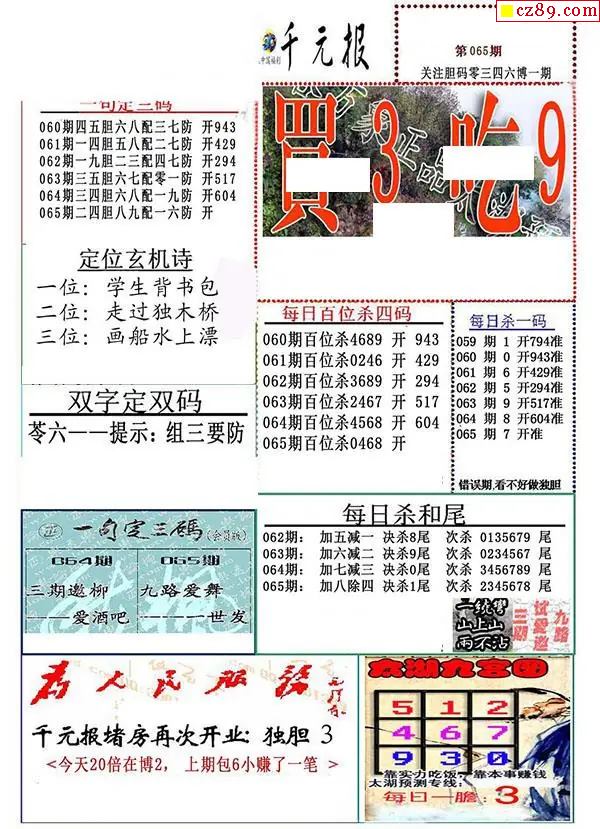 cz89.com
千元报
第065期
关注胆码零三四六博一期
一句定三码
060期四五胆六八配三七防 开943
061期一四胆五八配二七防 开429
062期一九胆二三配四七防 开294
063期三五胆六七配零一防 开517
064期三四胆六八配一九防 开604
065期二四胆八九配一六防 开
買3吃9
定位玄机诗
一位: 学生背书包
二位: 走过独木桥
三位: 画船水上漂
每日百位杀四码
060期百位杀4689 开 943
061期百位杀0246 开 429
062期百位杀3689 开 294
063期百位杀2467 开 517
064期百位杀4568 开 604
065期百位杀0468 开
每日杀一码
059 期 1 开794准
060 期 0 开943准
061 期 6 开429准
062 期 5 开294准
063 期 9 开517准
064 期 8 开604准
065 期 7 开准
错误期,看不好做独胆
双字定双码
苓六——提示: 组三要防
一句定三碼(会员版)
064期
065期
三期邀柳
——爱酒吧
九路爱舞
——世发
每日杀和尾
062期: 加五减一 决杀8尾 次杀 0135679 尾
063期: 加六减二 决杀9尾 次杀 0234567 尾
064期: 加七减三 决杀0尾 次杀 3456789 尾
065期: 加八除四 决杀1尾 次杀 2345678 尾
山上山
雨不沾
三期
试爱邀
九路
为人民服务
千元报堵房再次开业: 独胆 3
<今天20倍在博2, 上期包6小赚了一笔 >
太湖九宫图
5 1 2
4 6 7
9 3 0
靠实力吃饭, 靠本事赚钱
太湖预测专线:
每日一胆: 3